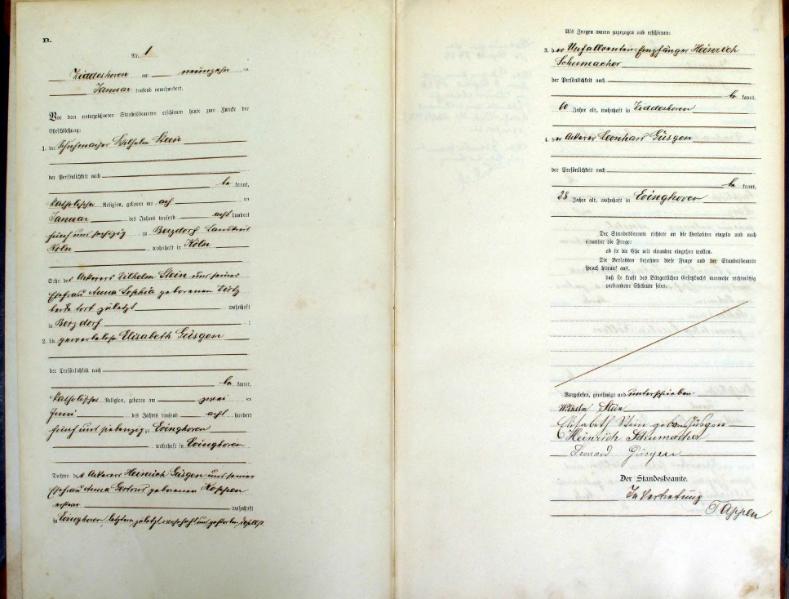 B.
Nr. 1
Widdeshoven am neunzehn ten
Januar tausend neunhundert.
Vor dem unterzeichneten Standesbeamten erschienen heute zum Zwecke der
Eheschließung:
1. der Schuhmacher Wilhelm Stein
der Persönlichkeit nach
be kannt,
katholischer Religion, geboren am acht ten
Januar des Jahres tausend acht hundert
fünf und sechszig zu Berzdorf Landkreis
Köln, wohnhaft in Köln
Sohn des Ackerers Wilhelm Stein und seiner
Ehefrau Anna Sophia geborenen
beide todt zuletzt wohnhaft
in Berzdorf :
2. die gewerbelose Elisabeth Güsgen
der Persönlichkeit nach
be kannt,
katholischer Religion, geboren am zwei ten
Juni des Jahres tausend acht hundert
fünf und siebenzig zu Evinghoven
, wohnhaft in Evinghoven
Tochter des Ackerers Heinrich Güsgen und seiner
Ehefrau Anna Gertrud geborenen Koppen
ersterer wohnhaft
in Evinghoven, letztere zuletzt wohnhaft und gestorben daselbst
Als Zeugen waren zugezogen und erschienen:
3. der Unfallrentenempfänger Heinrich
Schumacher
der Persönlichkeit nach
be kannt,
60 Jahre alt, wohnhaft in Widdeshoven
4. der Ackerer Leonhard Güsgen
der Persönlichkeit nach
be kannt,
28 Jahre alt, wohnhaft in Evinghoven
Der Standesbeamte richtete an die Verlobten einzeln und nach
einander die Frage:
ob sie die Ehe mit einander eingehen wollen.
Die Verlobten bejahten diese Frage und der Standesbeamte
sprach hierauf aus,
daß sie kraft des Bürgerlichen Gesetzbuchs nunmehr rechtmäßig
verbundene Eheleute seien.
Vorgelesen, genehmigt und unterschrieben
Wilhelm Stein
Elisabeth Stein geborene Güsgen
Heinrich Schumacher
Leonard Güsgen
Der Standesbeamte.
In Vertretung
Tappen